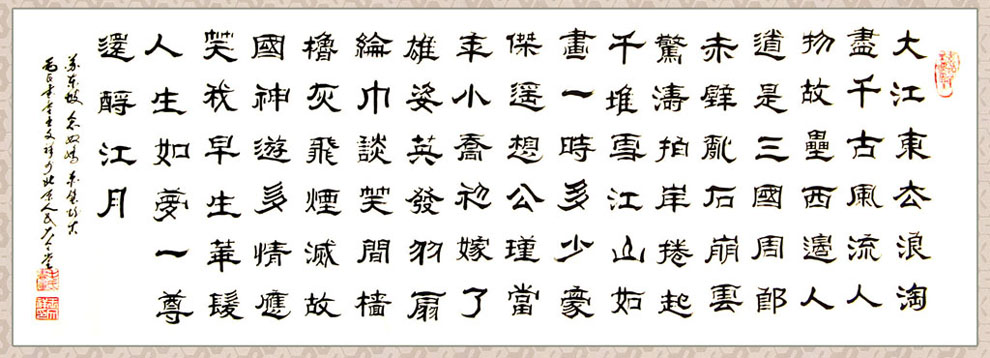 大江東去浪淘
盡千古風流人
物故壘西邊人
道是三國周郎
赤壁亂石崩雲
驚濤拍岸捲起
千堆雪江山如
畫一時多少豪
傑遥想公瑾當
年小喬初嫁了
雄姿英發羽扇
綸巾談笑間檣
櫓灰飛煙滅故
國神遊多情應
笑我早生華髮
人生如夢一尊
還酹江月
蘇東坡念奴嬌赤壁懷古
北京人民大會堂